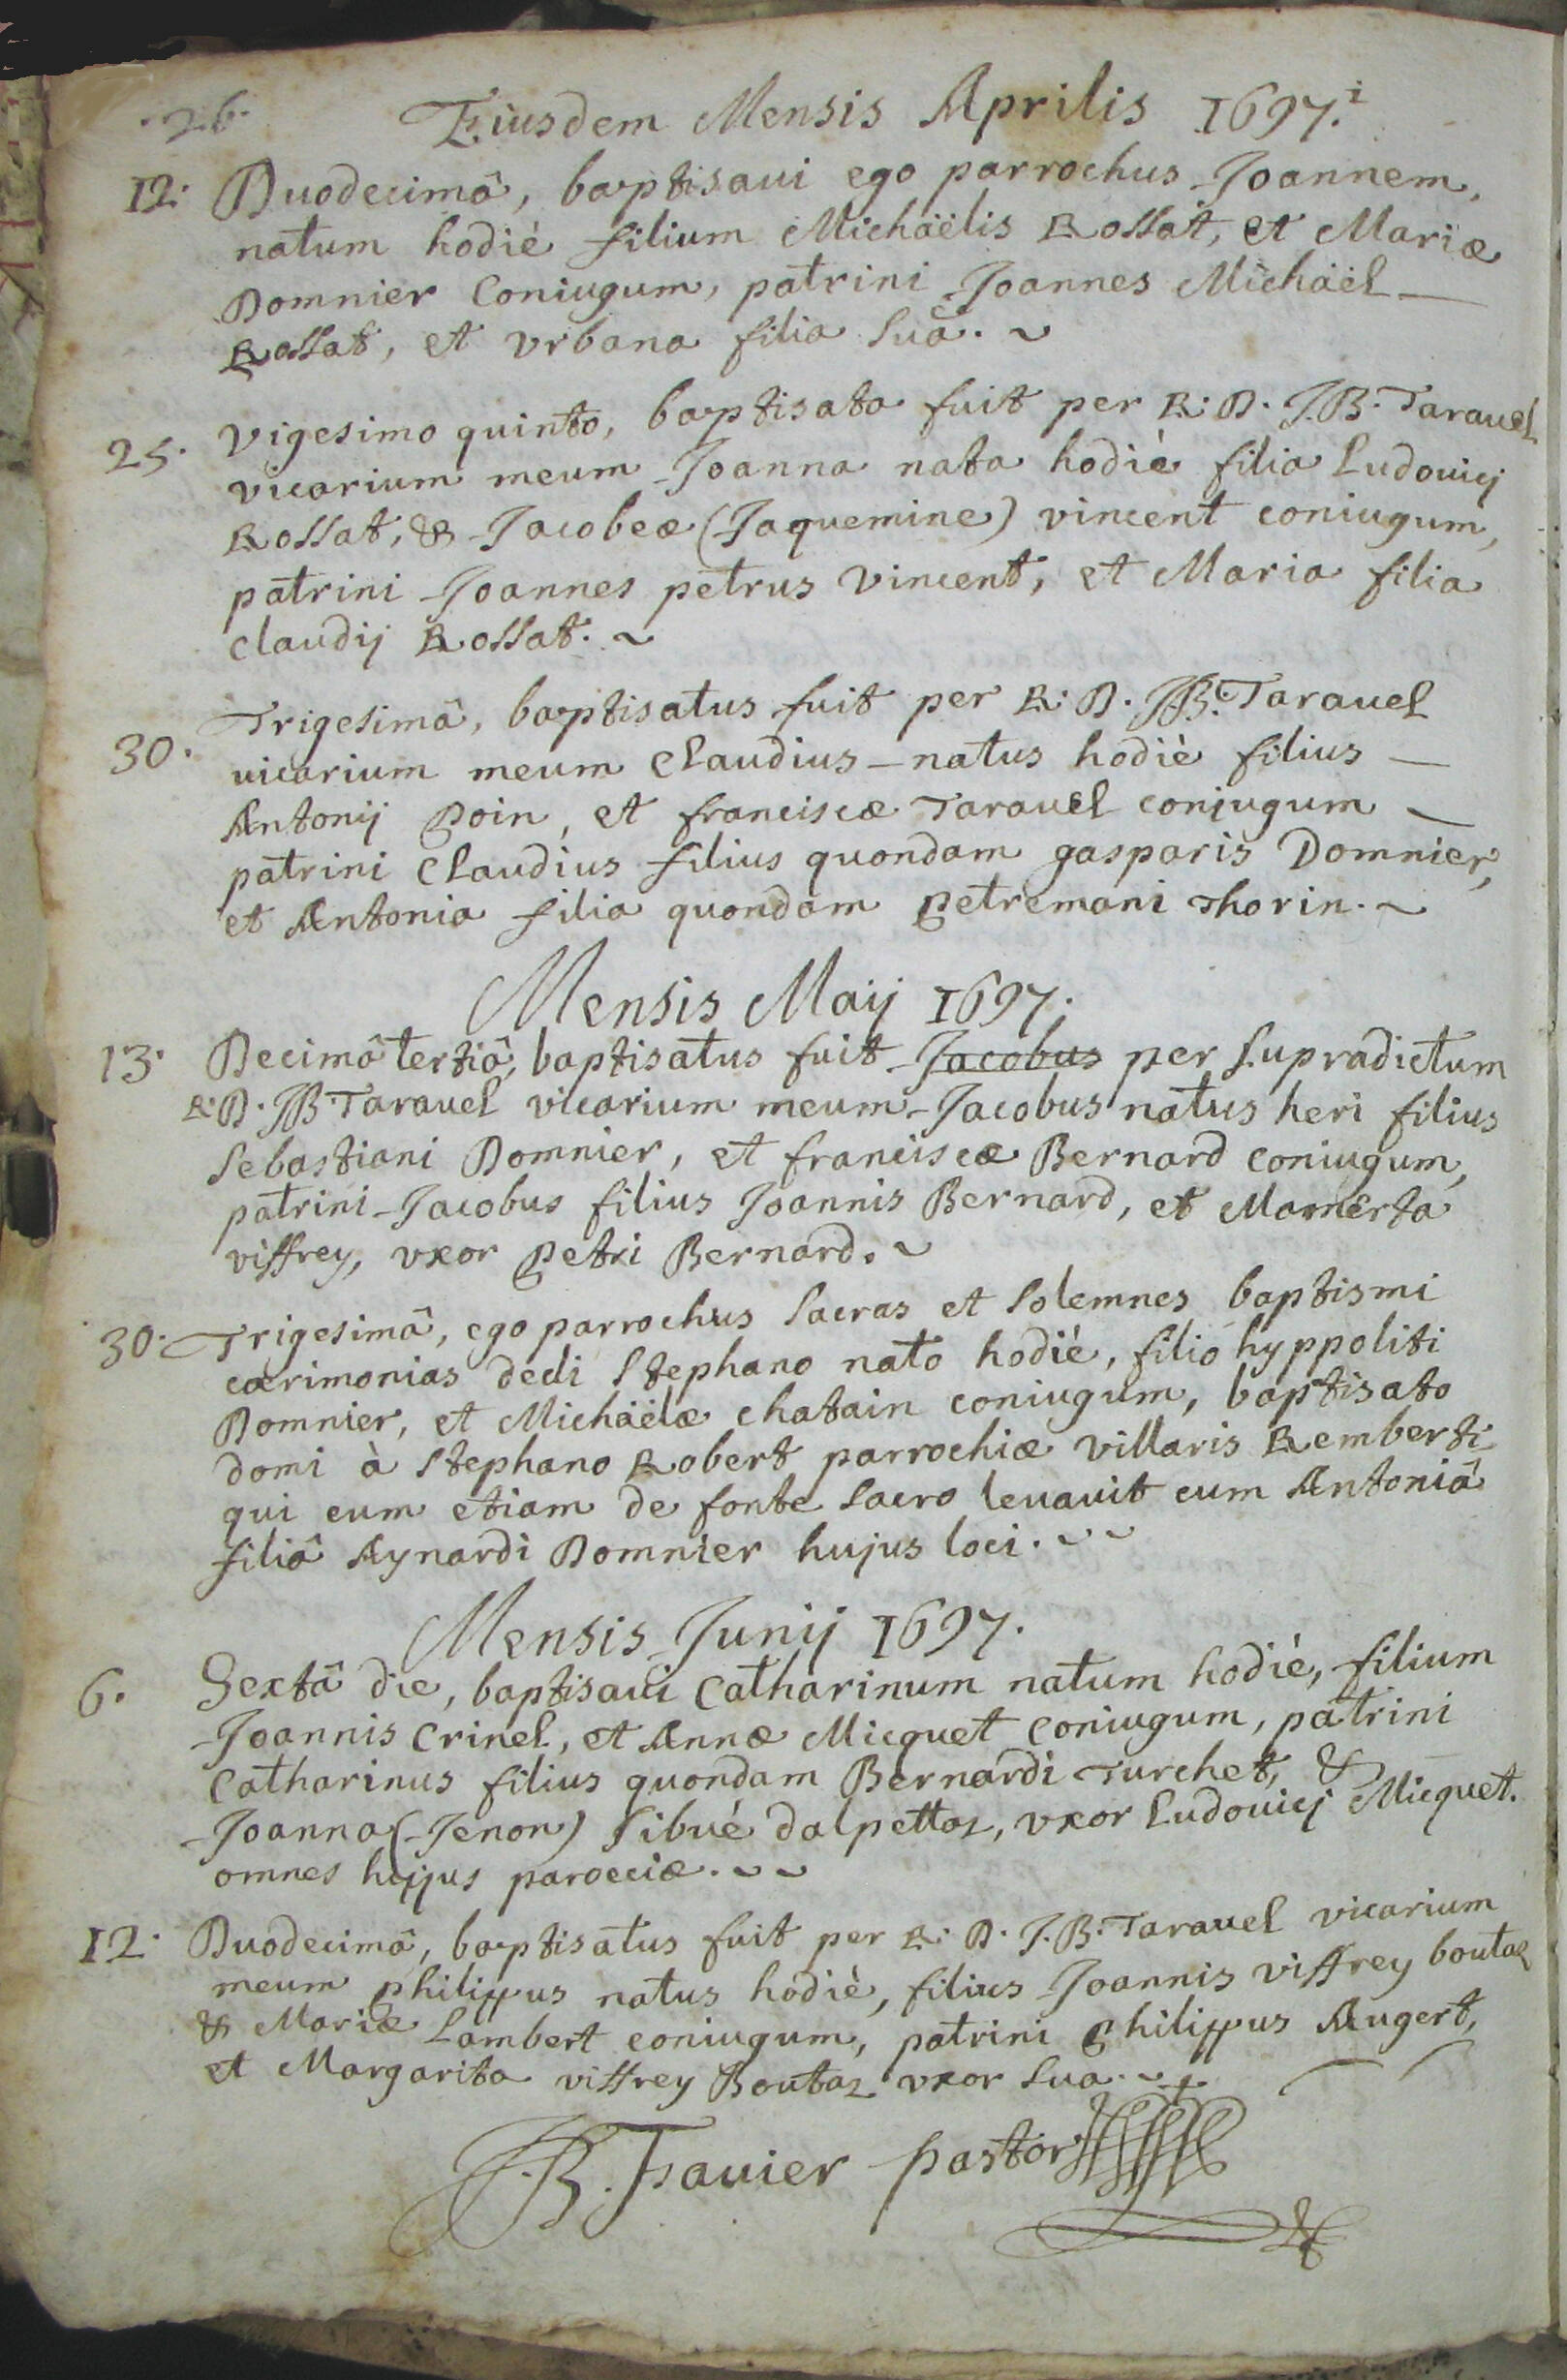 ·26·
Eiusdem Mensis Aprilis 1697.i
12· Duodecimâ, baptisaui ego parrochus Joannem,
natum hodiè filium Michäelis Rossat, et Mariæ
Domnier Coniugum, patrini Joannes Michäel —
Rossat, et vrbana filia sua. ~
25· Vigesimo quinto, baptisata fuit per R. D. J.B. Tarauel
vicarium meum Joanna nata hodiè filia Ludouicj
Rossat, & Jacobeæ (Jaquemine) vincent coniugum,
patrini Joannes petrus Vincent, et Maria filia
claudij Rossat. ~
30· Trigesimâ, baptisatus fuit per R. D. JB. Tarauel
uicarium meum Claudius — natus hodiè filius —
Antonij Poin, et franciscæ Tarauel conjugum —
patrini Claudius filius quondam gasparis Domnier,
et Antonia filia quondam petremani Thorin. ~
Mensis Maij 1697.
13· Decimâ tertiâ, baptisatus fuit Jacobus per Supradictum
R. D. JB Tarauel vicarium meum Jacobus natus heri filius
Sebastiani Domnier, et franciscæ Bernard coniugum,
patrini Jacobus filius Joannis Bernard, et Mamerta
viffrey, vxor petri Bernard. ~
30· Trigesimâ, ego parrochus Sacras et Solemnes baptismi
cærimonias dedi Stephano nato hodiè, filio hyppoliti
Domnier, et Michäelæ chatain coniugum, baptisato
domi à Stephano Robert parrochiæ villaris Remberti
qui eum etiam de fonte Sacro leuauit cum Antoniâ
filiâ Aynardi Domnier hujus loci. ~ ~
Mensis Junij 1697.
6. Sextâ die, baptisaui Catharinum natum hodiè, filium
Joannis Crinel, et Annæ Micquet Coniugum, patrini
Catharinus filius quondam Bernardi Turchet, &
Joanna (Jenon) Sibué dalpettaz, vxor Ludouicj Micquet.
omnes hujus paroeciæ. ~ ~
12· Duodecimâ, baptisatus fuit per R. D. J.B. Tarauel vicarium
meum philippus natus hodiè, filius Joannis viffrey boutaz
& Mariæ Lambert coniugum, patrini philippus Augert,
et Margarita viffrey Boutaz vxor Sua. ~
JB. Fauier pastor